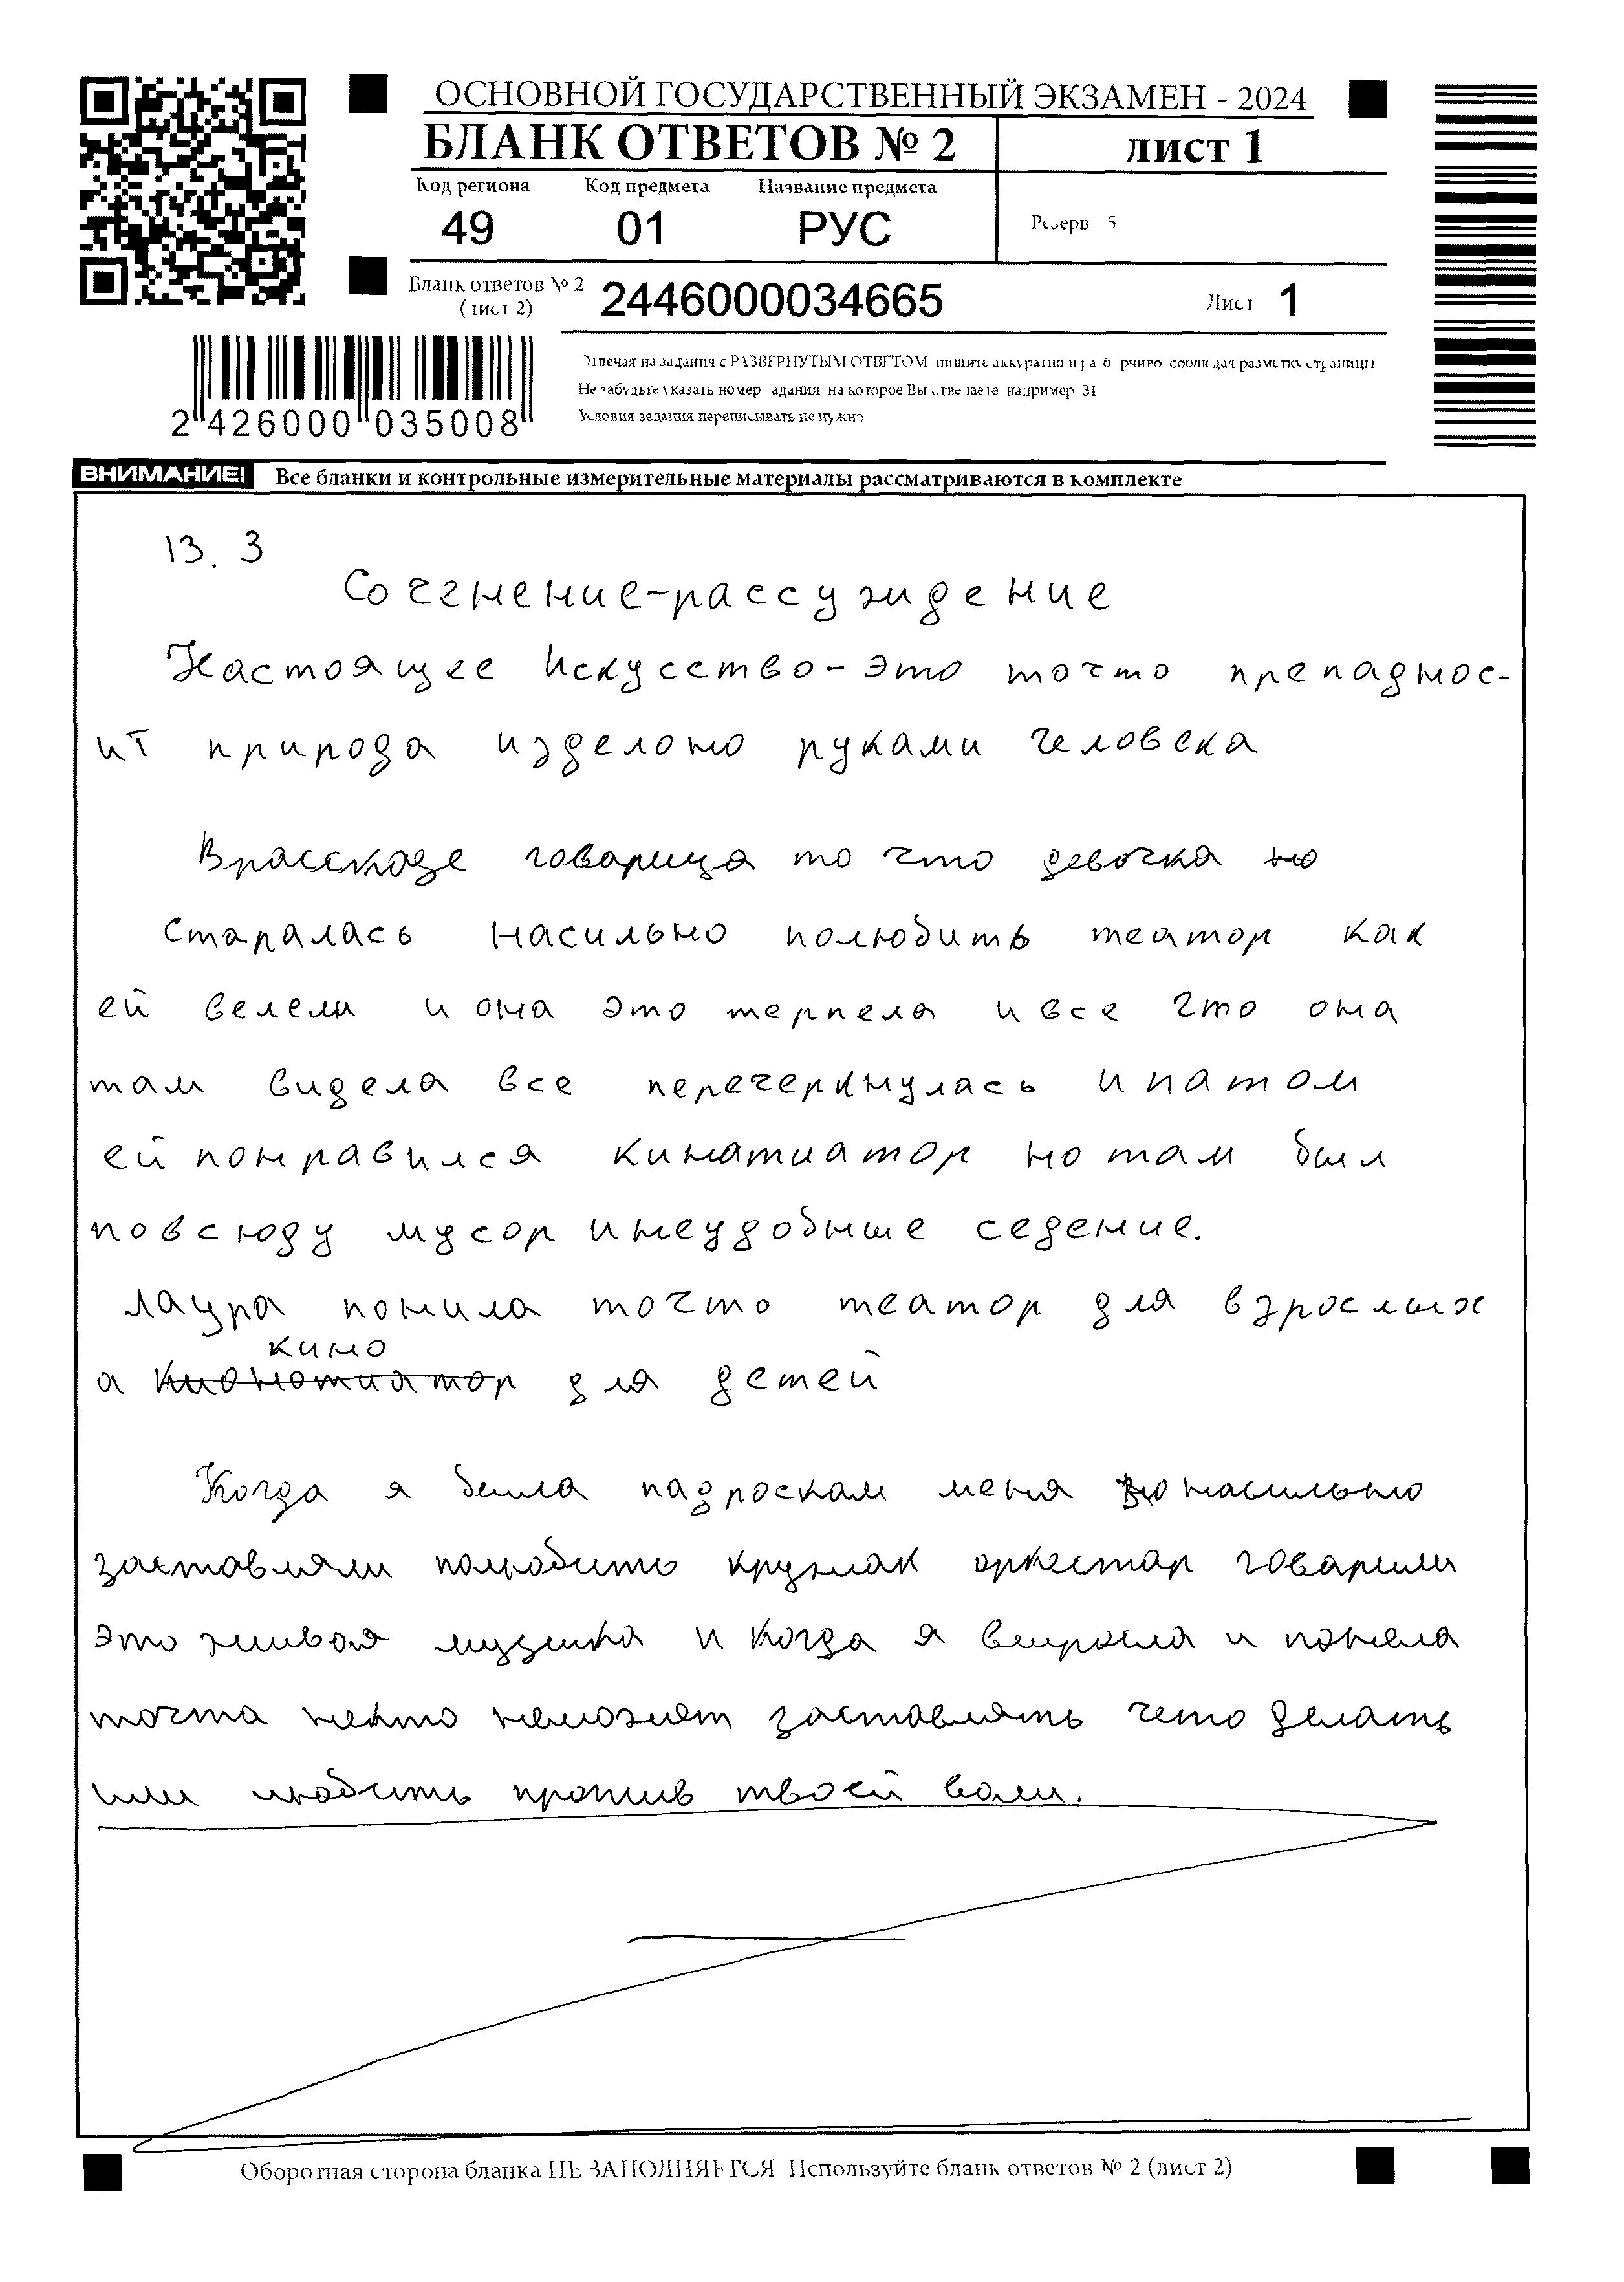 ОСНОВНОЙ ГОСУДАРСТВЕННЫЙ ЭКЗАМЕН - 2024
БЛАНК ОТВЕТОВ № 2
лист 1
Код региона Код предмета Название предмета
49 01 РУС
Резерв 5
Бланк ответов № 2
(лист 2)
2446000034665
Лист 1
2 426000 035008
Отвечая на задания с РАЗВЕРНУТЫМ ОТВЕТОМ пишите аккуратно и разборчиво соблюдая разметку страницы
Не забудьте указать номер задания на которое Вы отвечаете например 31
Условия задания переписывать не нужно
ВНИМАНИЕ! Все бланки и контрольные измерительные материалы рассматриваются в комплекте
13. 3
Соченение-рассуждение
Настоящее Искусство-это точто препаднос-
ит природа изделоно руками человека
В расскозе говарица то что девочка
старалась насильно полюбить театор как
ей велели и она это терпела и все что она
там видела все перечеркнулась и патом
ей понравился кинатиатор но там был
повсюду мусор и неудобные седение.
Лаура понила точто театор для взрослых
кино
а кионотиатор для детей
Когда я была падроскам меня насильно
заставляли полюбить кружак оркестар говарили
это живая музыка и когда я выросла и понела
точта некто неможет заставлять чето делать
или любить против твоей воли.
Оборотная сторона бланка НЕ ЗАПОЛНЯЕТСЯ Используйте бланк ответов № 2 (лист 2)